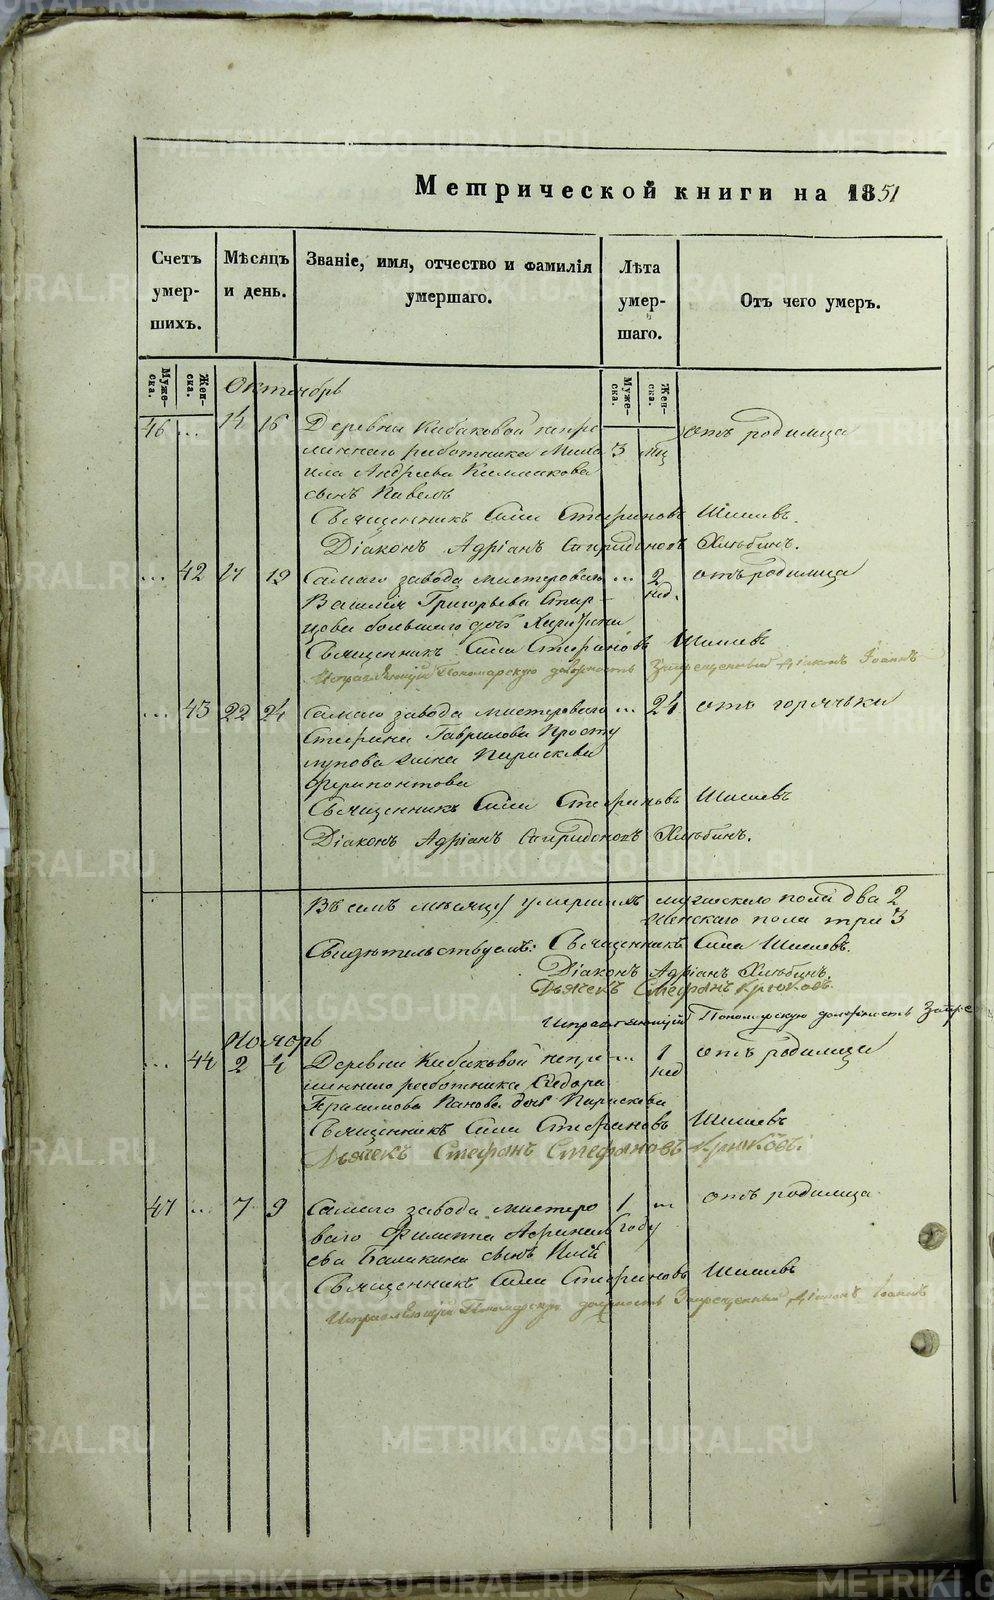 Метрической книги на 1851
Счетъ умер-шихъ.
Мѣсяцъ и день.
Званіе, имя, отчество и фамилія умершаго.
Лѣта умер-шаго.
Отъ чего умеръ.
Муже-ска.
Жен-ска.
Муже-ска.
Жен-ска.
Октябрь
46 ... 14 16 Деревни Кибаковой непре
меннаго работника Миха 3 мц отъ родимца
ила Андреева Климакова
сынъ Павелъ
Священникъ Сила Стефановъ Шишевъ.
Діаконъ Адріанъ Спиридоновъ Хлыбинъ.
... 42 17 19 Самаго завода мастероваго ... 2 нед. отъ родимца
Василія Григорьева Стар-
цова большаго дочь
Священникъ Сила Стефановъ Шишевъ
Исправляющій Пономарскую должность Запрещенный Діаконъ Іоаннъ
... 43 22 24 Самаго завода мастероваго ... 24 отъ горячьки
Стефана Гаврилова Просту
лупова жена Параскева
Ферапонтова
Священникъ Сила Стефановъ Шишевъ
Діаконъ Адріанъ Спиридоновъ Хлыбинъ.
Въ семъ мѣсяцѣ умершихъ мужеско пола два 2
Женскаго пола три 3
Свидѣтельствуемъ: Священникъ Сила Шишевъ.
Діаконъ Адріанъ Хлыбинъ.
Дьячекъ Стефанъ Крюковъ.
Исправляющій Пономарскую должность Запре
Ноябрь
... 44 2 4 Деревни Кибаковой непре ... 1 нед отъ родимца
меннаго работника Сидора
Панова дочь Параскева
Священникъ Сила Стефановъ Шишевъ
Дьячекъ Стефанъ Стефановъ Крюковъ.
47 ... 7 9 Самаго завода мастеро 1 ... отъ родимца
ваго Филиппа Афанась году
ева Балакина сынъ Илій
Священникъ Сила Стефановъ Шишевъ
Исправляющій Пономарскую должность Запрещенный Діаконъ Іоаннъ
METRIKI.GASO-URAL.RU